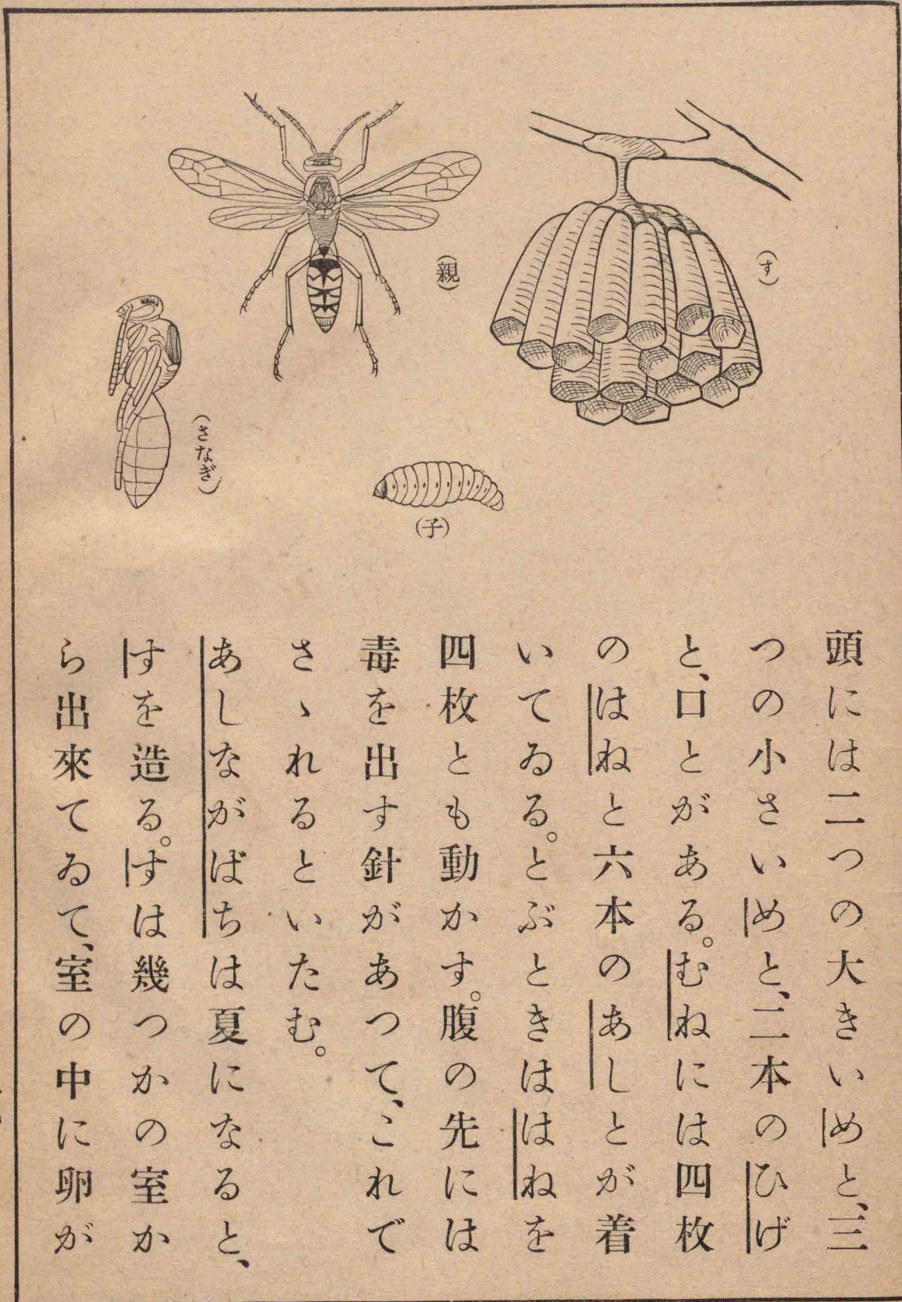 (す)
(親)
(さなぎ)
(子)
頭には二つの大きいめと、三
つの小さいめと、二本のひげ
と、口とがある。むねには四枚
のはねと六本のあしとが着
いてゐる。とぶときははねを
四枚とも動かす。腹の先には
毒を出す針があつて、これで
さゝれるといたむ。
あしながばちは夏になると、
すを造る。すは幾つかの室か
ら出來てゐて、室の中に卵が